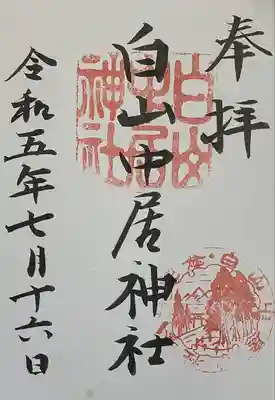 奉拝
白山中居神社
令和五年七月十六日
白山中居神社